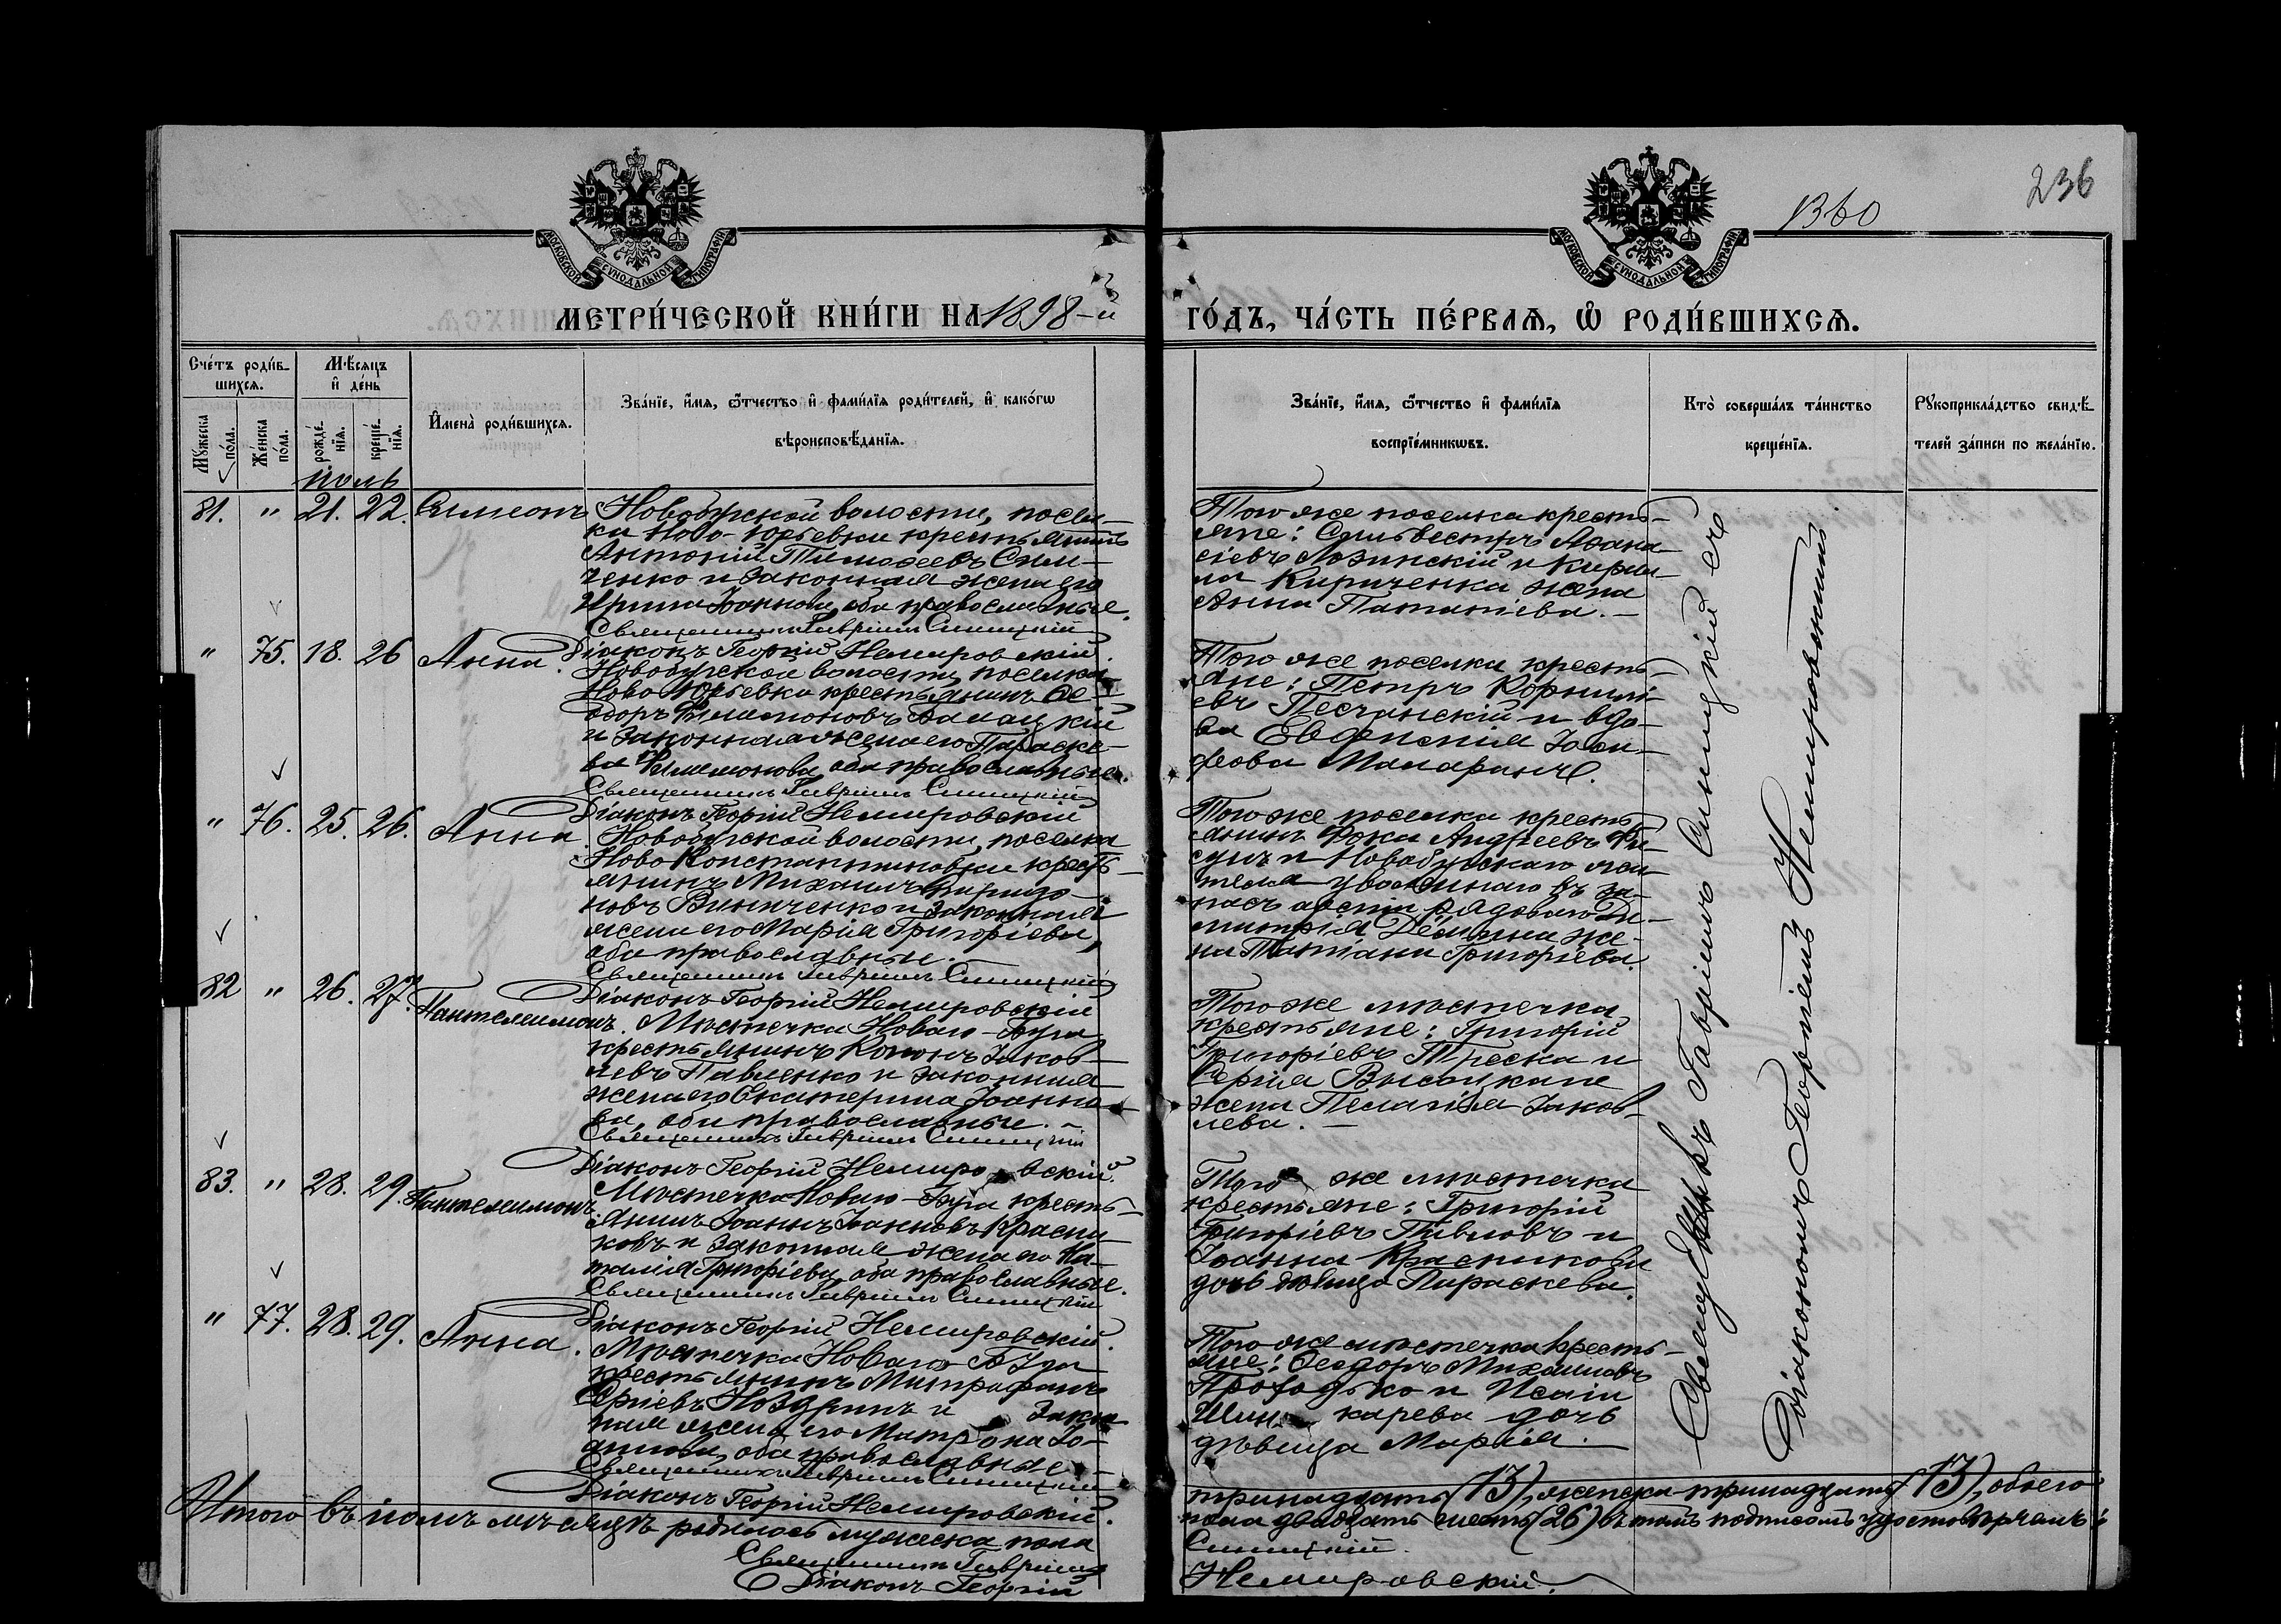 1360
236
МОСКОВСКОЙ СѴНОДАЛЬНОЙ ТИПОГРАФІИ
МОСКОВСКОЙ СѴНОДАЛЬНОЙ ТИПОГРАФІИ
МЕТРИ́ЧЕСКОЙ КНИ́ГИ НА 1898-й
ГО́ДЪ, ЧА́СТЬ ПЕ́РВАѦ, Ѽ РОДИ́ВШИХСѦ.
Сче́тъ роди́в-
шихсѧ.
Мѣ́сѧцъ
и҆ де́нь
Мꙋ́жеска
по́ла.
Же́нска
по́ла.
рожде́-
нїѧ.
креще́-
нїѧ.
И҆мена̀ роди́вшихсѧ.
Зва́нїе, и҆́мѧ, ѻ҆́тчество и҆ фами́лїѧ роди́телей, и҆ како́гѡ
вѣроисповѣ́данїѧ.
Зва́нїе, и҆́мѧ, ѻ҆́тчество и҆ фами́лїѧ
воспрїе́мникѡвъ.
Кто̀ соверша́лъ та́инство
креще́нїѧ.
Рꙋкоприкла́дство свидѣ́-
телей за́писи по жела́нїю.
Іюль
81. " 21. 22. Симеонъ
Новобугской волости, посел-
ка Ново-Юрьевки крестьянинъ
Антоній Тимоѳеевъ Сим-
ченко и законная жена его
Ирина Іоаннова, оба православные.
Священникъ Гавріилъ Синицкій
Діаконъ Георгій Немировскій.
Того же поселка кресть-
яне: Сильвестръ Аѳана-
сіевъ Лозинскій и Кирил-
ла Кириченка жена
Анна Потапіева. —
" 75. 18. 26 Анна.
Новобугской волости, поселка
Ново-Юрьевки крестьянинъ Ѳе-
одоръ Филимоновъ
и законная жена его Параске-
ва Филимонова, оба православные.
Священникъ Гавріилъ Синицкій
Діаконъ Георгій Немировскій
Того же поселка кресть-
яне: Петръ Корнилі-
евъ Песчанскій и вдо-
ва Евфимія Іоси-
фова
" 76. 25. 26. Анна.
Новобугской волости, поселка
Ново Константиновки кресть-
янинъ Михаилъ
новъ Виниченко и законная
жена его Марія Григоріева,
оба православные.
Священникъ Гавріилъ Синицкій
Діаконъ Георгій Немировскій
Того же поселка кресть-
янинъ Фока Андреевъ
и Новобугскаго жи-
теля уволеннаго въ за-
пасъ арміи рядоваго Ди-
митрія Демина же-
на Татіана Григоріева.
82 " 26. 27. Пантелеимонъ.
Мѣстечка Новаго-Буга
крестьянинъ Кононъ Іаков-
левъ Павленко и законная
жена его Екатерина Іоанно-
ва, оба православные. —
Священникъ Гавріилъ Синицкій
Діаконъ Георгій Немировскій.
Того же мѣстечка
крестьяне: Григорій
Григоріевъ Треска и
Сергія
жена Пелагія Іаков-
лева. —
83. " 28. 29. Пантелеимонъ.
Мѣстечка Новаго-Буга кресть-
янинъ Іоаннъ Іоанновъ Красни-
ковъ и законная жена его На-
талія Григоріева, оба православные.
Священникъ Гавріилъ Синицкій
Діаконъ Георгій Немировскій.
Того же мѣстечка
крестьяне: Григорій
Григоріевъ Павловъ и
Іоанна Красникова
дочь дѣвица Параскева.
" 77. 28. 29. Анна.
Мѣстечка Новаго-Буга
крестьянинъ Митрофанъ
Сергіевъ Ноздринъ и закон-
ная жена его Матрона Іо-
аннова, оба православные. —
Священникъ Гавріилъ Синицкій
Діаконъ Георгій Немировскій.
Того же мѣстечка кресть-
яне: Ѳеодоръ Михаиловъ
и Исаіи
Шин карева дочь
дѣвица Марія. —
Священникъ Гавріилъ Синицкій съ
Діакономъ Георгіемъ Немировскимъ
Итого въ іюлѣ мѣсяцѣ родилось мужеска пола
тринадцать (13), женска-тринадцать (13), обоего
пола двадцать шесть (26) въ томъ подписомъ удостовѣряемъ:
Священникъ Гавріилъ
Синицкій.
Діаконъ Георгій
Немировскій.